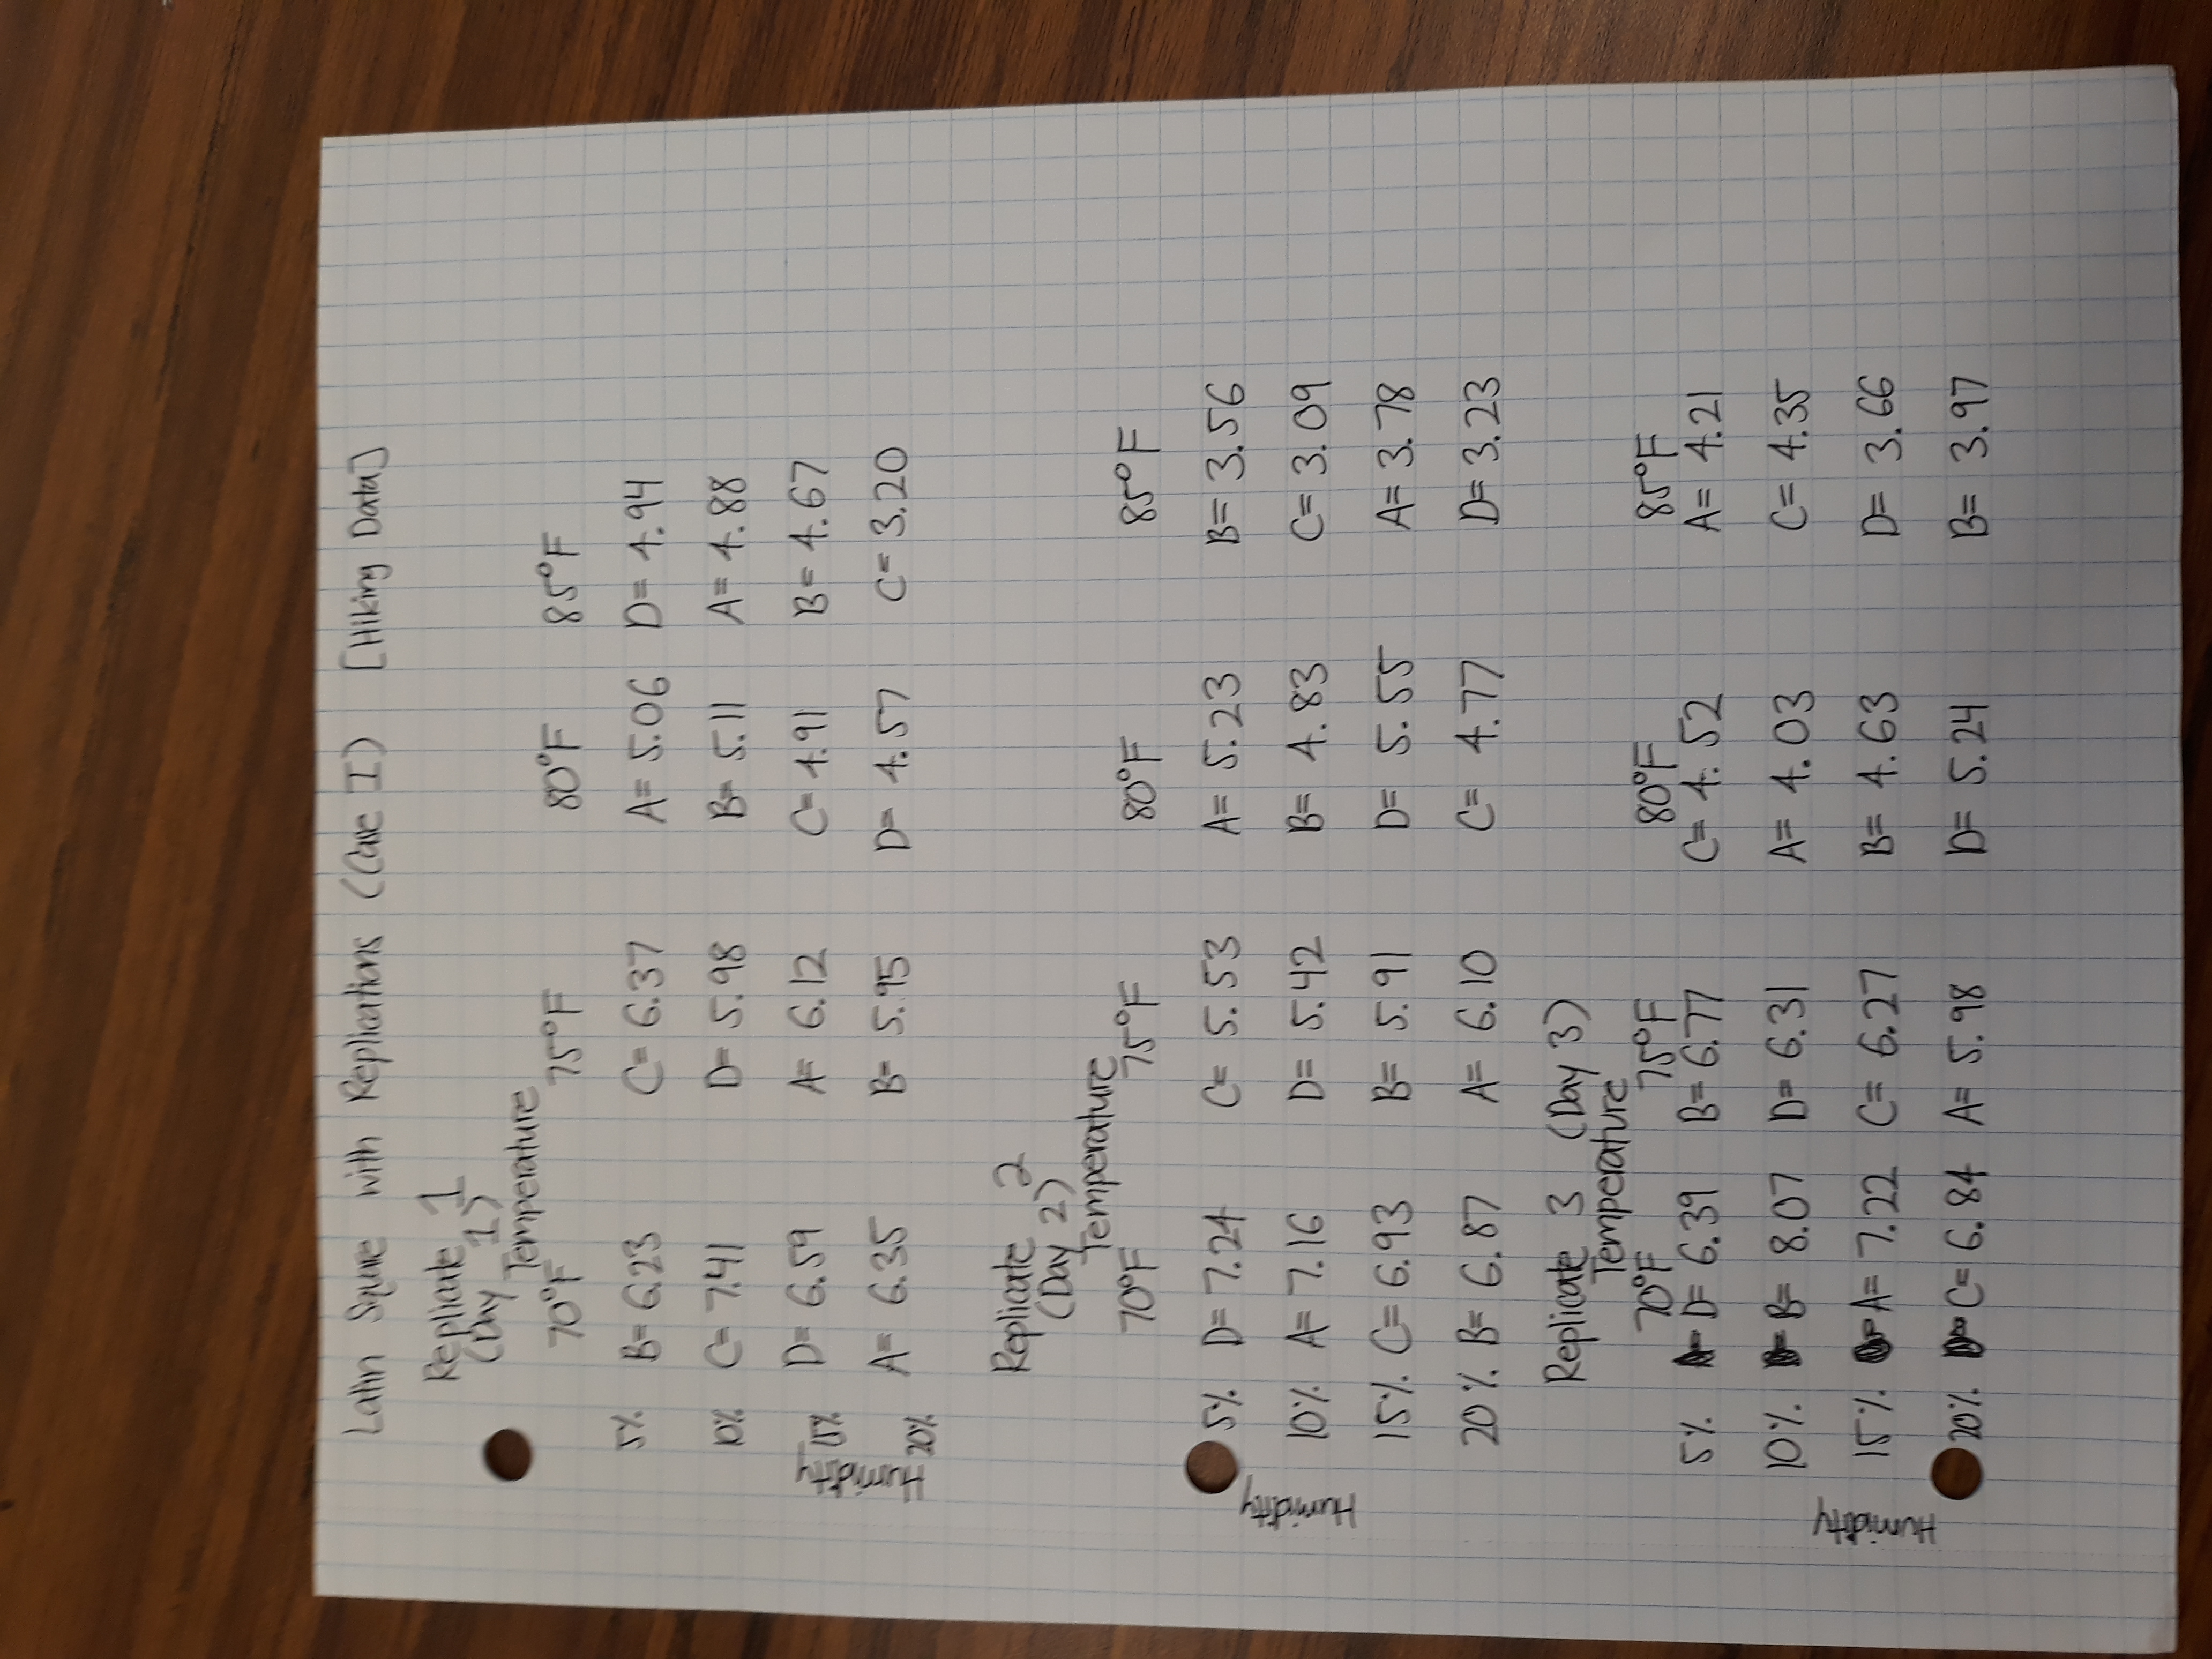 Latin Square with Replications (Case I) [Hiking Data]
Replicate 1
(Day 1)
Temperature
70°F 75°F 80°F 85°F
5% B= 6.23 C= 6.37 A= 5.06 D= 4.94
10% C= 7.41 D= 5.98 B= 5.11 A= 4.88
Humidity
15% D= 6.59 A= 6.12 C= 4.91 B= 4.67
20% A= 6.35 B= 5.95 D= 4.57 C= 3.20
Replicate 2
(Day 2)
Temperature
70°F 75°F 80°F 85°F
5% D= 7.24 C= 5.53 A= 5.23 B= 3.56
Humidity
10% A= 7.16 D= 5.42 B= 4.83 C= 3.09
15% C= 6.93 B= 5.91 D= 5.55 A= 3.78
20% B= 6.87 A= 6.10 C= 4.77 D= 3.23
Replicate 3 (Day 3)
Temperature
70°F 75°F 80°F 85°F
5% D= 6.39 B= 6.77 C= 4.52 A= 4.21
10% B= 8.07 D= 6.31 A= 4.03 C= 4.35
Humidity
15% A= 7.22 C= 6.27 B= 4.63 D= 3.66
20% C= 6.84 A= 5.98 D= 5.24 B= 3.97